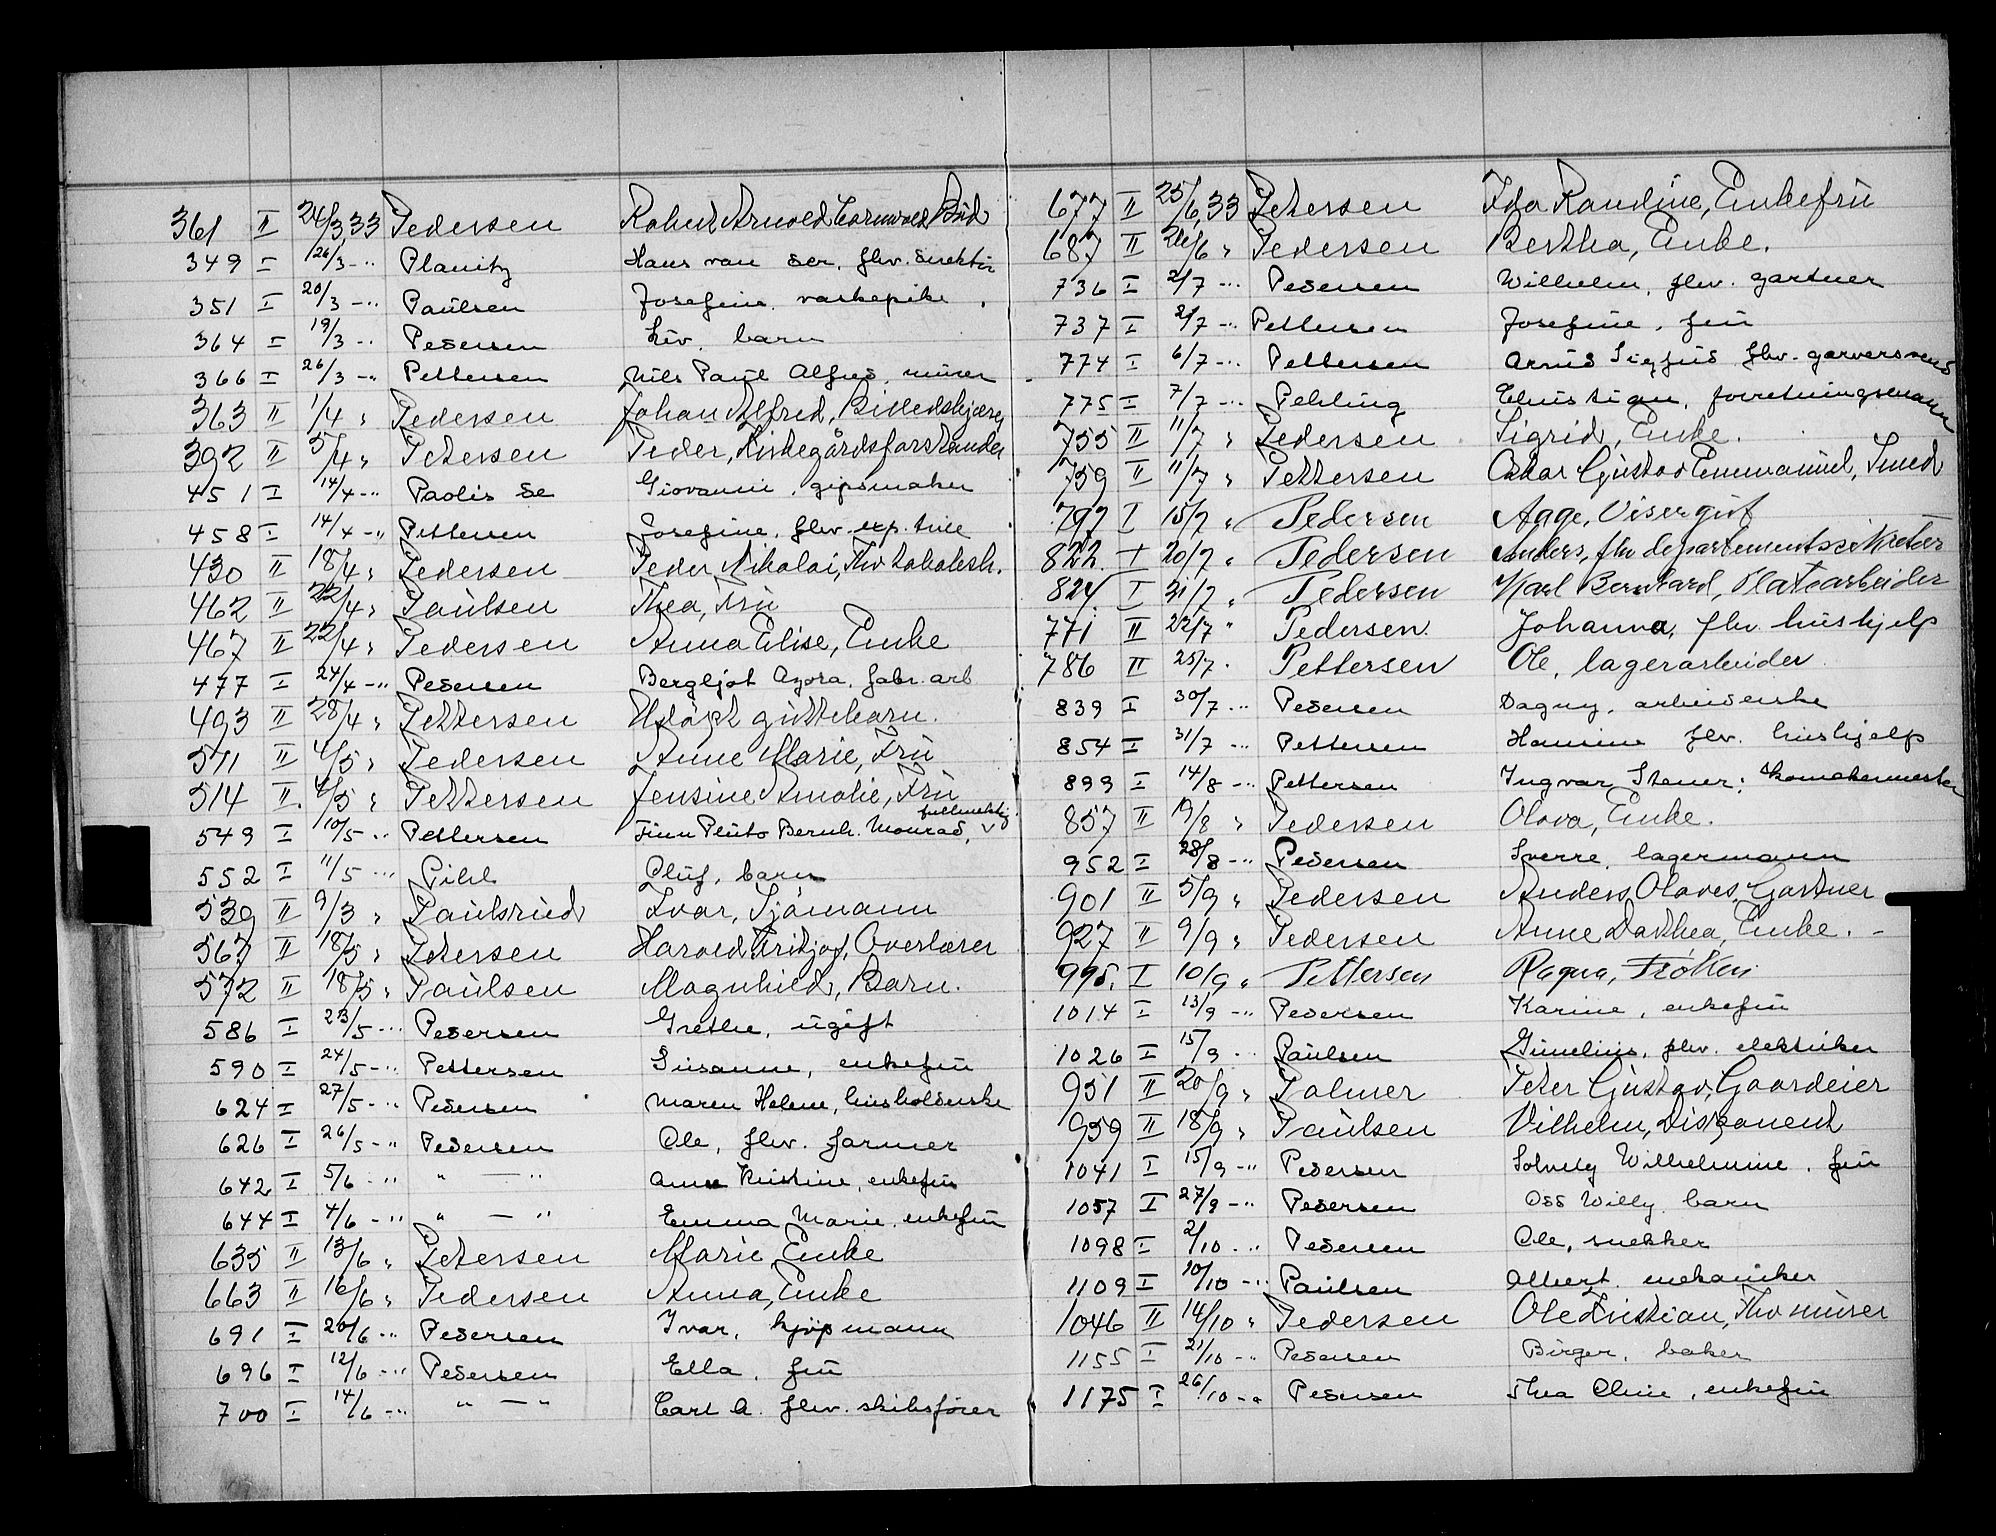 361 II 24/3.33 Pedersen Robert Arnold Cornwald Bud
349 I 26/3 -" Planitz Hans van der, fhv. direktør
351 I 20/3 -" Paulsen Josefine, vaskepike
364 I 19/3 -" Pedersen Liv, barn
366 I 26/3 -" Pettersen Nils Paul Alfred, murer
363 II 1/4 " Pedersen Johan Alfred, Billedskjærer
392 II 5/4 " Petersen Peder, Kirkegårdsforstander
451 I 14/4 -" Paolis de Giovanni, gipsmaker
458 I 14/4 -" Pettersen Josefine, fhv. exp.trice
430 II 18/4 " Pedersen Peder Nikolai, Fhv Tobaksh.
462 II 22/4 " Paulsen Thea, Fru
467 II 22/4 " Pedersen Anna Elise, Enke
477 I 24/4 -" Pedersen Bergljot Agora, fabr. arb
493 II 28/4 " Pettersen Udøpt guttebarn.
511 II 4/5 " Pedersen Anne Marie, Fru
514 II 4/5 " Pettersen Jensine Amalie, Fru
549 I 10/5 -" Pettersen Finn Pluto Bernh. Monrad, fullmektig
552 I 11/5 -" Pihl Oluf, barn
539 II 9/3 " Paulsrud Ivar, Sjømann
567 II 18/5 " Petersen Harald Fritjof, Overlærer
572 II 18/5 " Paulsen Magnhild, Barn.
586 I 23/5 -" Pedersen Grethe, ugift
590 I 24/5 -" Pettersen Susanne, enkefru
624 I 27/5 -" Pedersen Maren Helene, husholderske
626 I 26/5 -" Pedersen Ole, fhv. farmer
642 I 5/6 -" " — " Anna Kristine, enkefru
644 I 4/6 -" " — " Emma Marie, enkefru
635 II 13/6 " Petersen Marie, Enke
663 II 16/6 " Pedersen Anna, Enke
691 I 20/6 -" Pedersen Ivar, kjøpmann
696 I 12/6 -" Pedersen Ella, fru
700 I 14/6 -" " — " Carl A. fhv. skibsfører
677 II 25/6.33 Petersen Ida Randine, Enkefru
687 II 26/6 " Pedersen Bertha, Enke.
736 I 2/7 -" Pedersen Wilhelm, fhv. gartner
737 I 2/7 -" Pettersen Josefine, fru
774 I 6/7 -" Pettersen Arnt Sigfus fhv. garversvend
775 I 7/7 -" Pehling Christian, forretningsmann
755 II 11/7 " Pedersen Sigrid, Enke.
759 II 11/7 " Pettersen Oskar Gustav Emmanuel, Smed
797 I 15/7 " Pedersen Aage, Visergut
822 I 20/7 " Pedersen Anders, fhv departementssekretær
824 I 31/7 " Pedersen Karl Bernhard, Platearbeider
771 II 22/7 " Pedersen Johanna, fhv. hushjelp
786 II 25/7 Pettersen Ole, lagerarbeider
839 I 30/7 -" Pedersen Dagny, arbeiderske
854 I 31/7 -" Pettersen Hansine fhv. hushjelp
899 I 14/8 -" Pettersen Ingvar Stener, skomakermester
857 II 19/8 " Pedersen Olava, Enke.
952 I 28/8 -" Pedersen Sverre, lagermann
901 II 5/9 " Pedersen Anders Olaves, Gartner
927 II 9/9 " Pedersen Anne Dorthea, Enke.
995. I 10/9 " Pettersen Ragna, Frøken
1014 I 13/9 -" Pedersen Karine, enkefru
1026 I 15/9 -" Paulsen fhv. elektriker
951 II 20/9 " Palmer Peter Gustav, Gaardeier
959 II 18/9 " Paulsen Vilhelm, Disponent
1041 I 15/9 -" Pedersen Solveig Wilhelmine, fru
1057 I 27/9 -" Pedersen Odd Willy, barn
1098 I 2/10 -" Pedersen Ole, snekker
1109 I 10/10 -" Paulsen Albert, mekaniker
1046 II 14/10 " Pedersen Ole Kristian, Fhv murer
1155 I 21/10 -" Pedersen Birger, baker
1175 I 26/10 -" Pedersen Thea Oline, enkefru